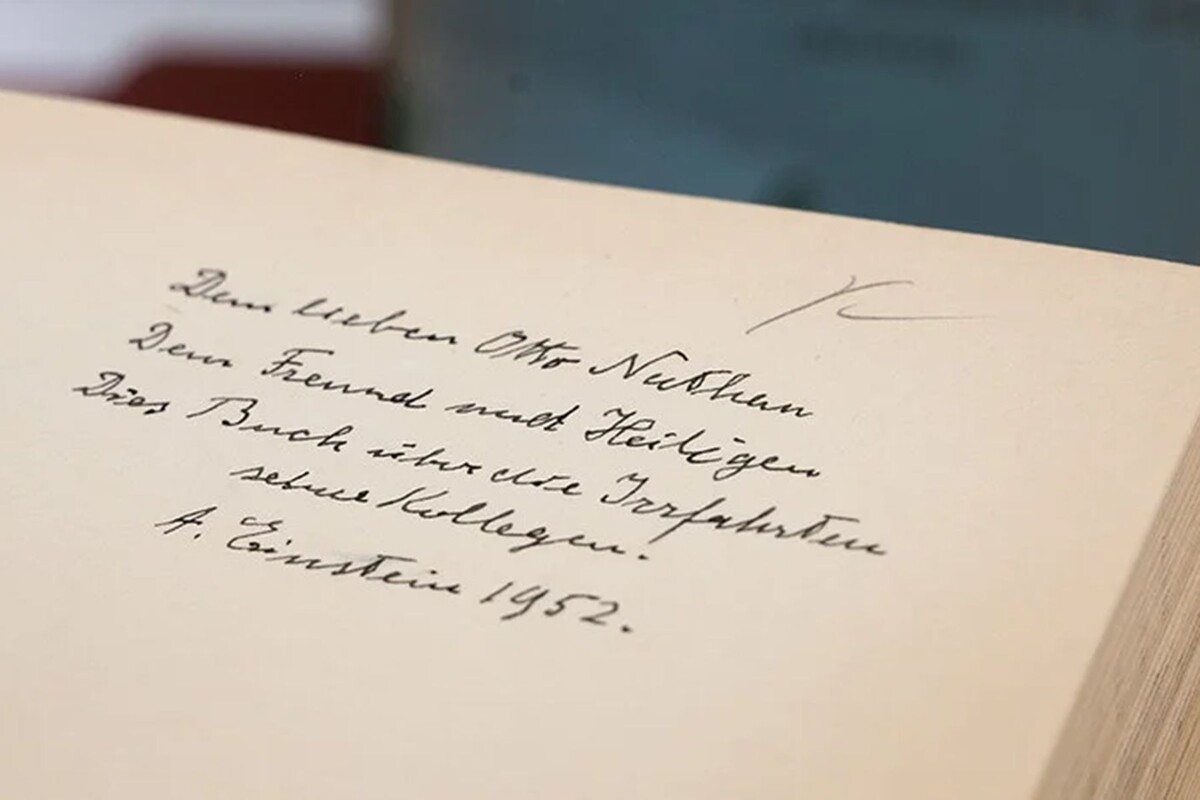 Dem lieben Otto Nathan
Dem Freund und Heiligen
Dies Buch über die Irrfahrten
seine Kollegen.
A. Einstein 1952.